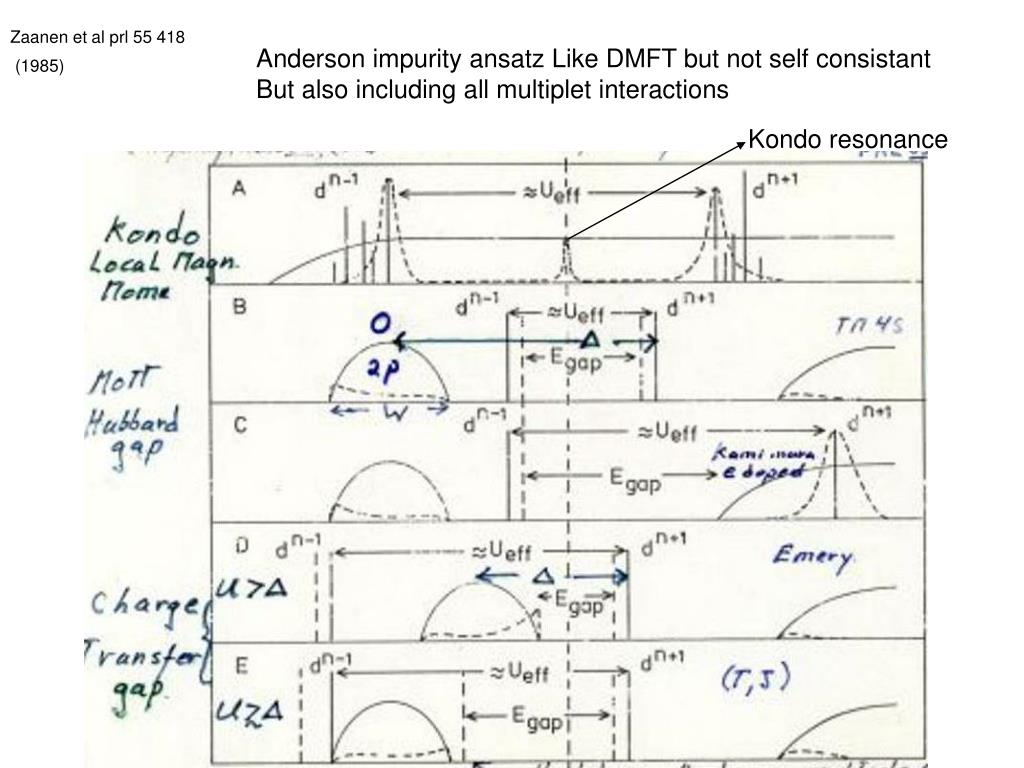 Zaanen et al prl 55 418
(1985)
Anderson impurity ansatz Like DMFT but not self consistant
But also including all multiplet interactions
Kondo resonance
A
dⁿ⁻¹
≈Ueff
dⁿ⁺¹
Kondo
Local Magn.
Mome
B
dⁿ⁻¹
≈Ueff
dⁿ⁺¹
O
2p
Δ
Egap
TM 4S
W
Mott
Hubbard
gap
C
dⁿ⁻¹
≈Ueff
dⁿ⁺¹
Egap
Kamimura
e doped
D
dⁿ⁻¹
≈Ueff
dⁿ⁺¹
U>Δ
Δ
Egap
Emery
Charge
Transfer
gap.
E
dⁿ⁻¹
≈Ueff
dⁿ⁺¹
(T,S)
U≳Δ
Egap